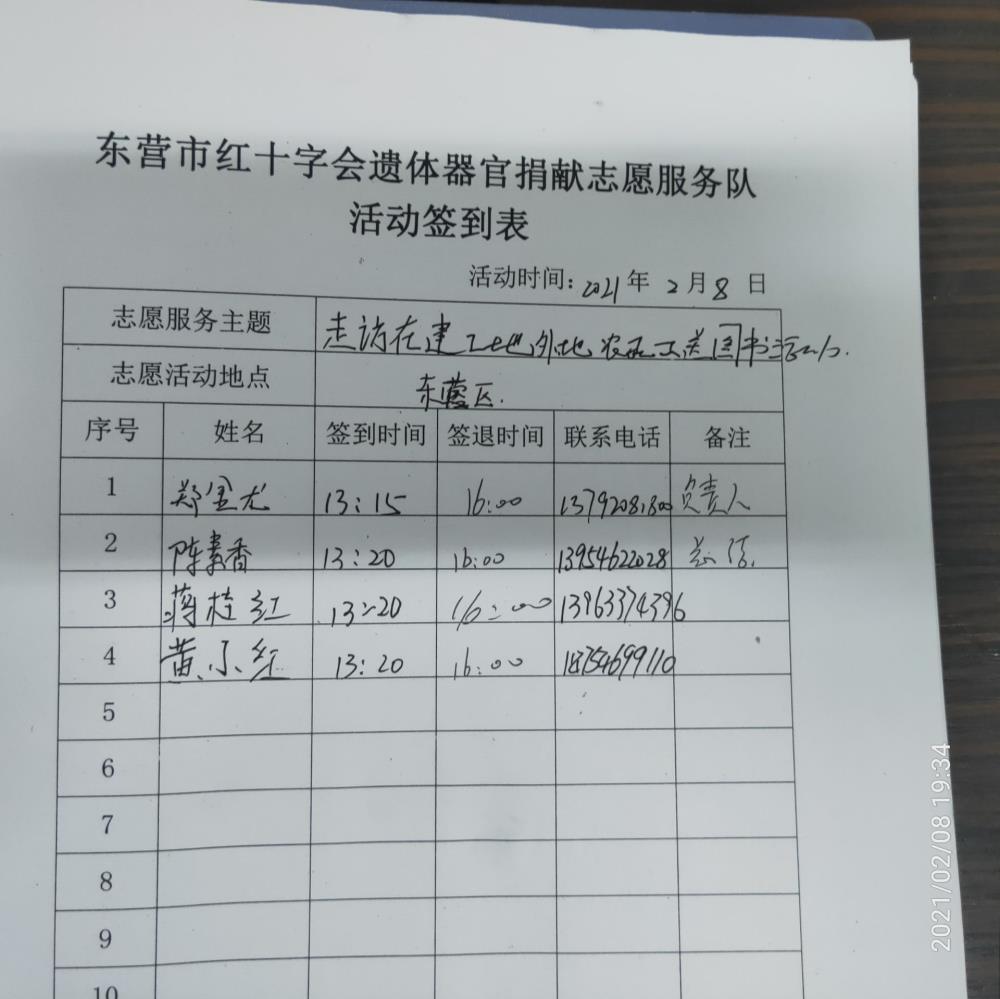 东营市红十字会遗体器官捐献志愿服务队
活动签到表
活动时间：2021年 2月8 日
志愿服务主题 走访在建工地外地农民工送图书活动.
志愿活动地点 东营区.
序号 姓名 签到时间 签退时间 联系电话 备注
1 郑金尤 13:15 16:00 负责人
2 陈素香 13:20 16:00 13954622028
3 蒋桂红 13:20 16:00 13963374396
4 黄小红 13:20 16:00 18754699110
5
6
7
8
9
10
2021/02/08 19:34